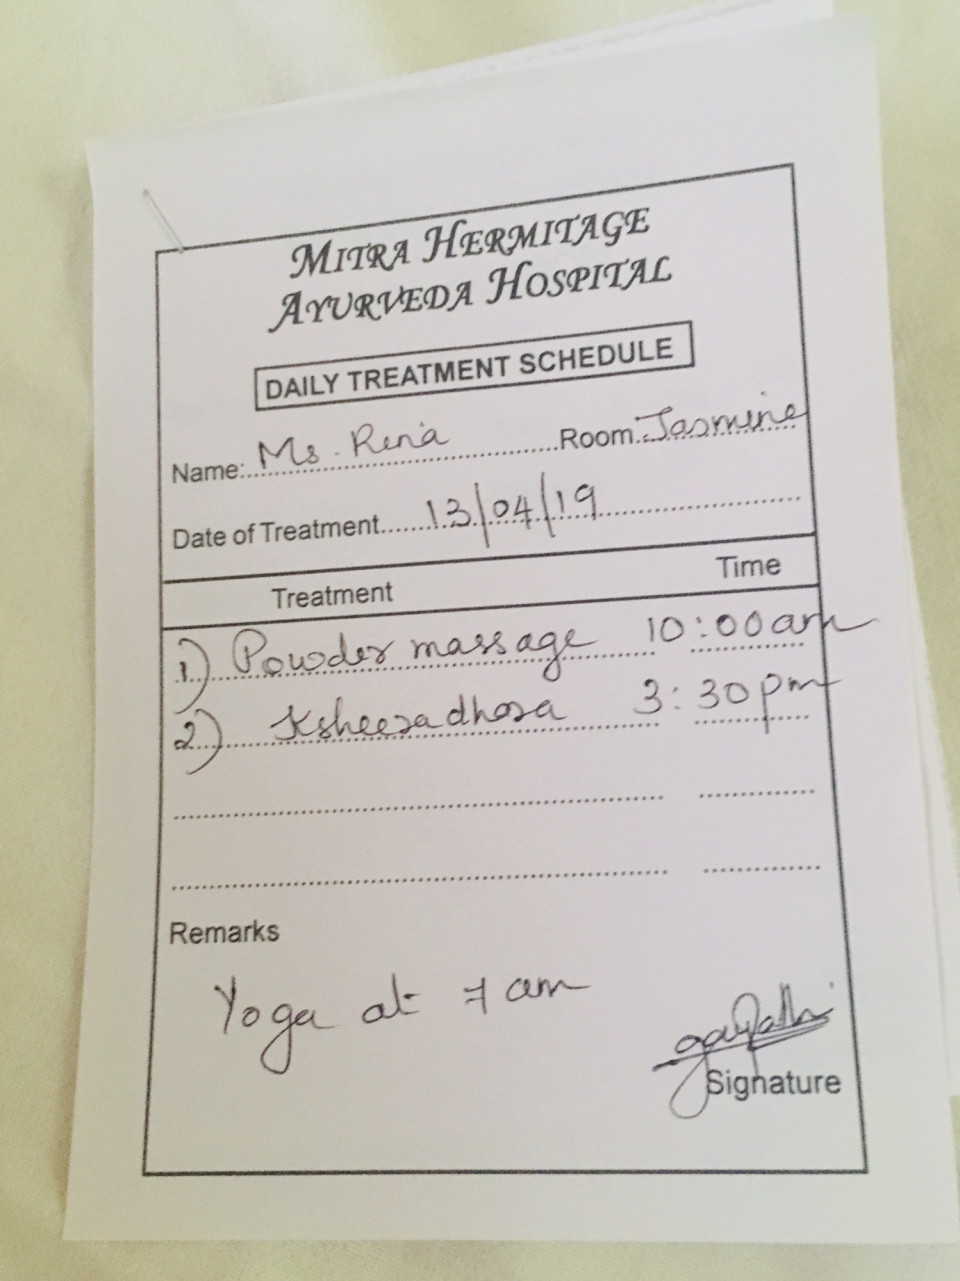 MITRA HERMITAGE
AYURVEDA HOSPITAL
DAILY TREATMENT SCHEDULE
Name: Ms. Rena Room Jasmine
Date of Treatment 13/04/19
Treatment Time
1) Powder massage 10:00am
2) Ksheeradhara 3:30pm
Remarks
Yoga at 7 am
gayathri
Signature